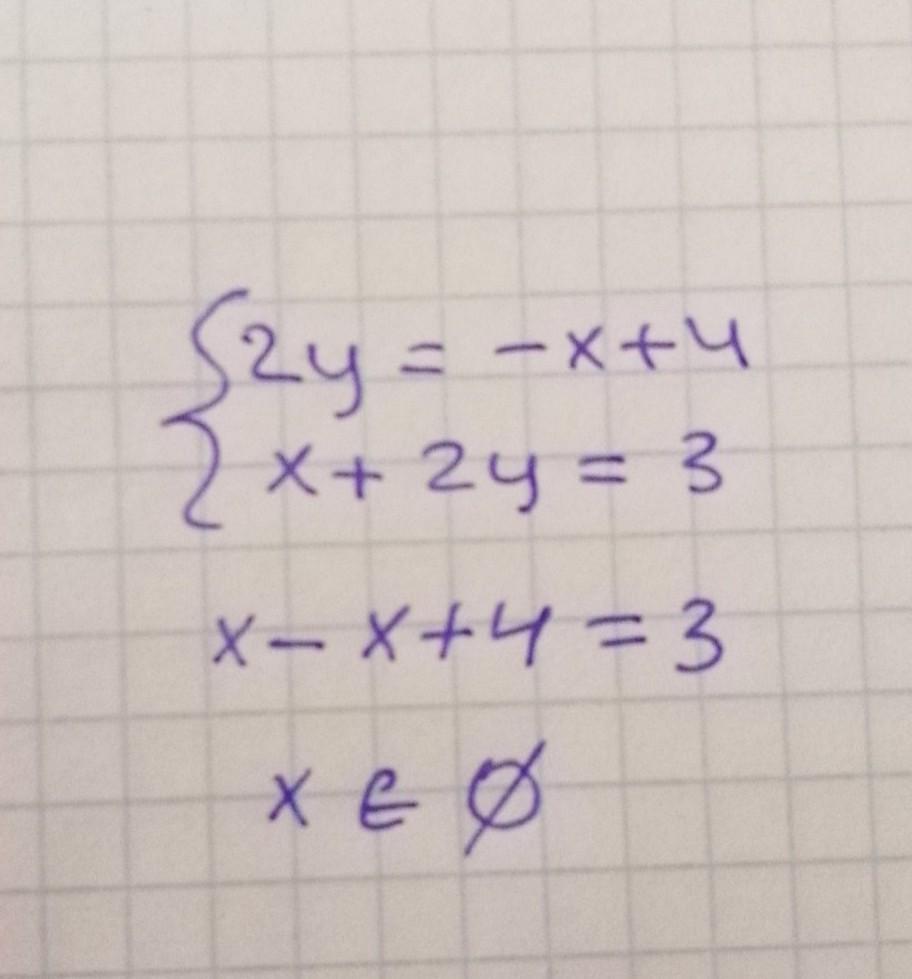 {2y = -x+4
x + 2y = 3
x - x + 4 = 3
x ∈ Ø